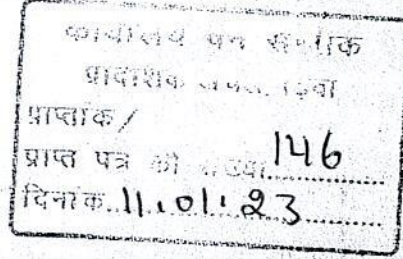 कार्यालय वन संरक्षक
प्रादेशिक
प्राप्तांक/
प्राप्त पत्र की संख्या 146
दिनांक 11.01.23